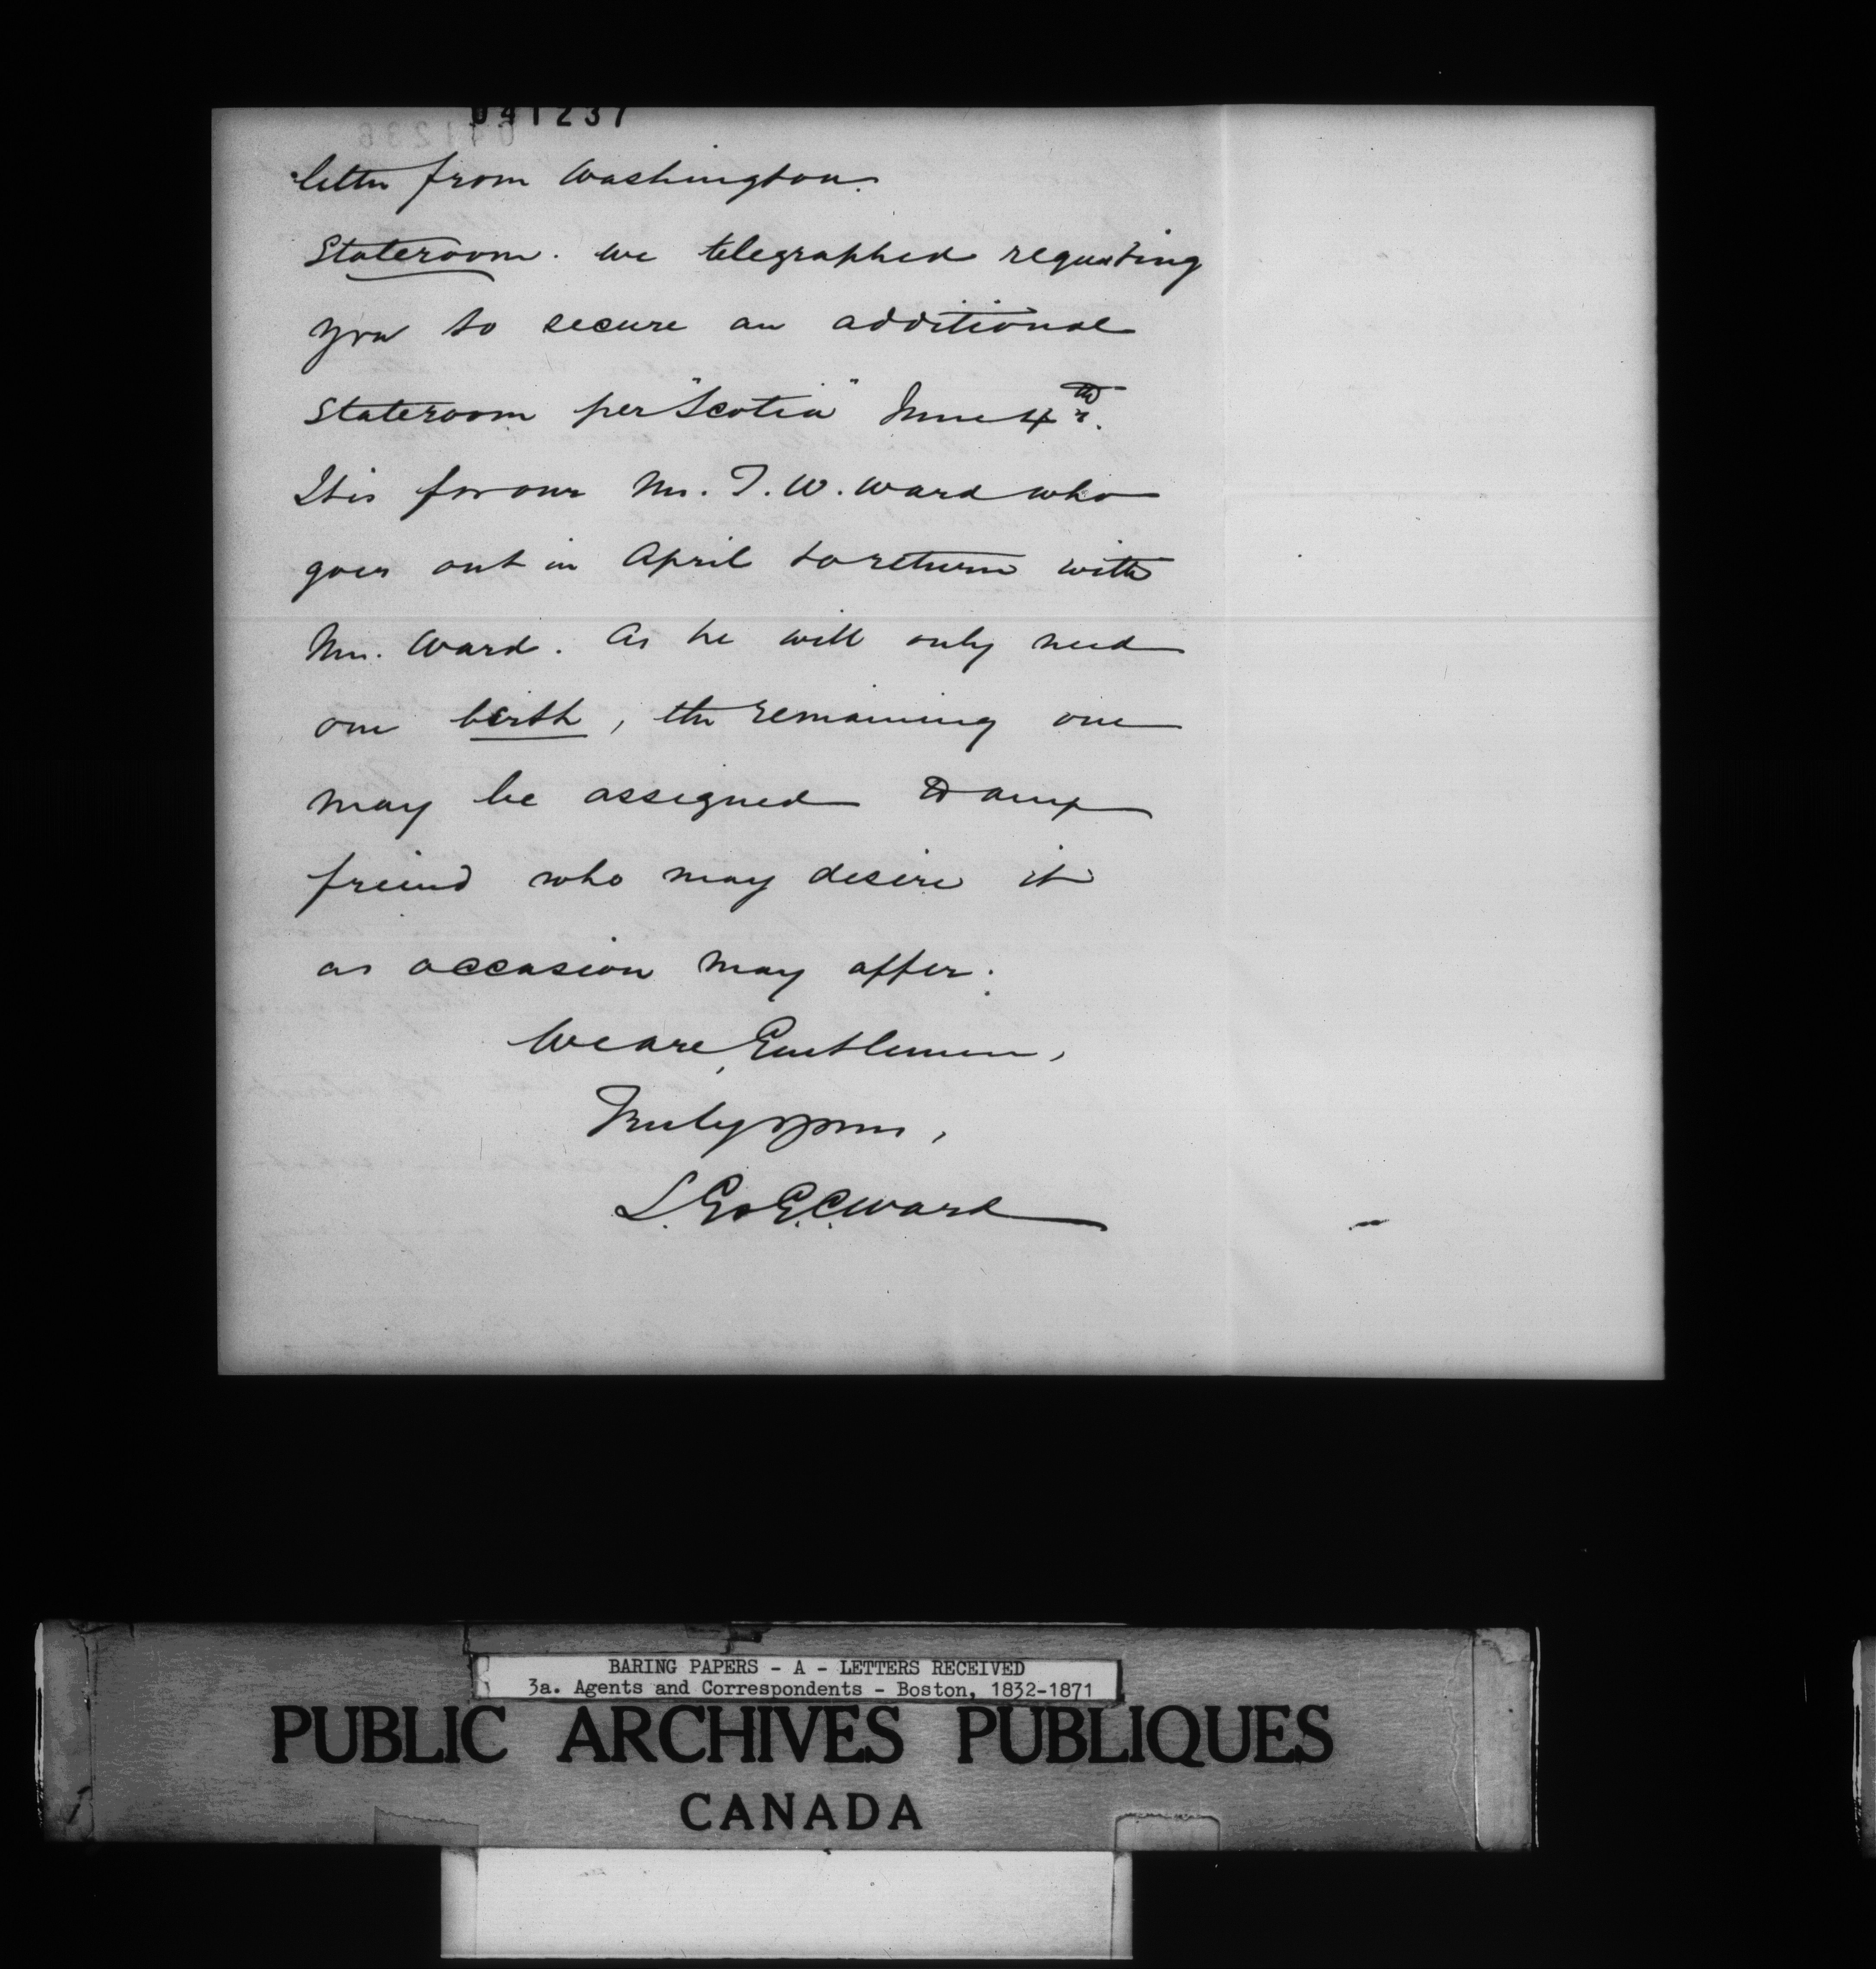 041237
letter from Washington.
Stateroom. We telegraphed requesting
you to secure an additional
Stateroom per "Scotia" June 4th.
It is for our Mr. T. W. Ward who
goes out in April to return with
Mr. Ward. As he will only need
one birth, the remaining one
may be assigned to any
friend who may desire it
as occasion may offer.
We are, Gentlemen,
Truly yours,
S. G. & G. C. Ward
BARING PAPERS - A - LETTERS RECEIVED
3a. Agents and Correspondents - Boston, 1832-1871
PUBLIC ARCHIVES PUBLIQUES
CANADA